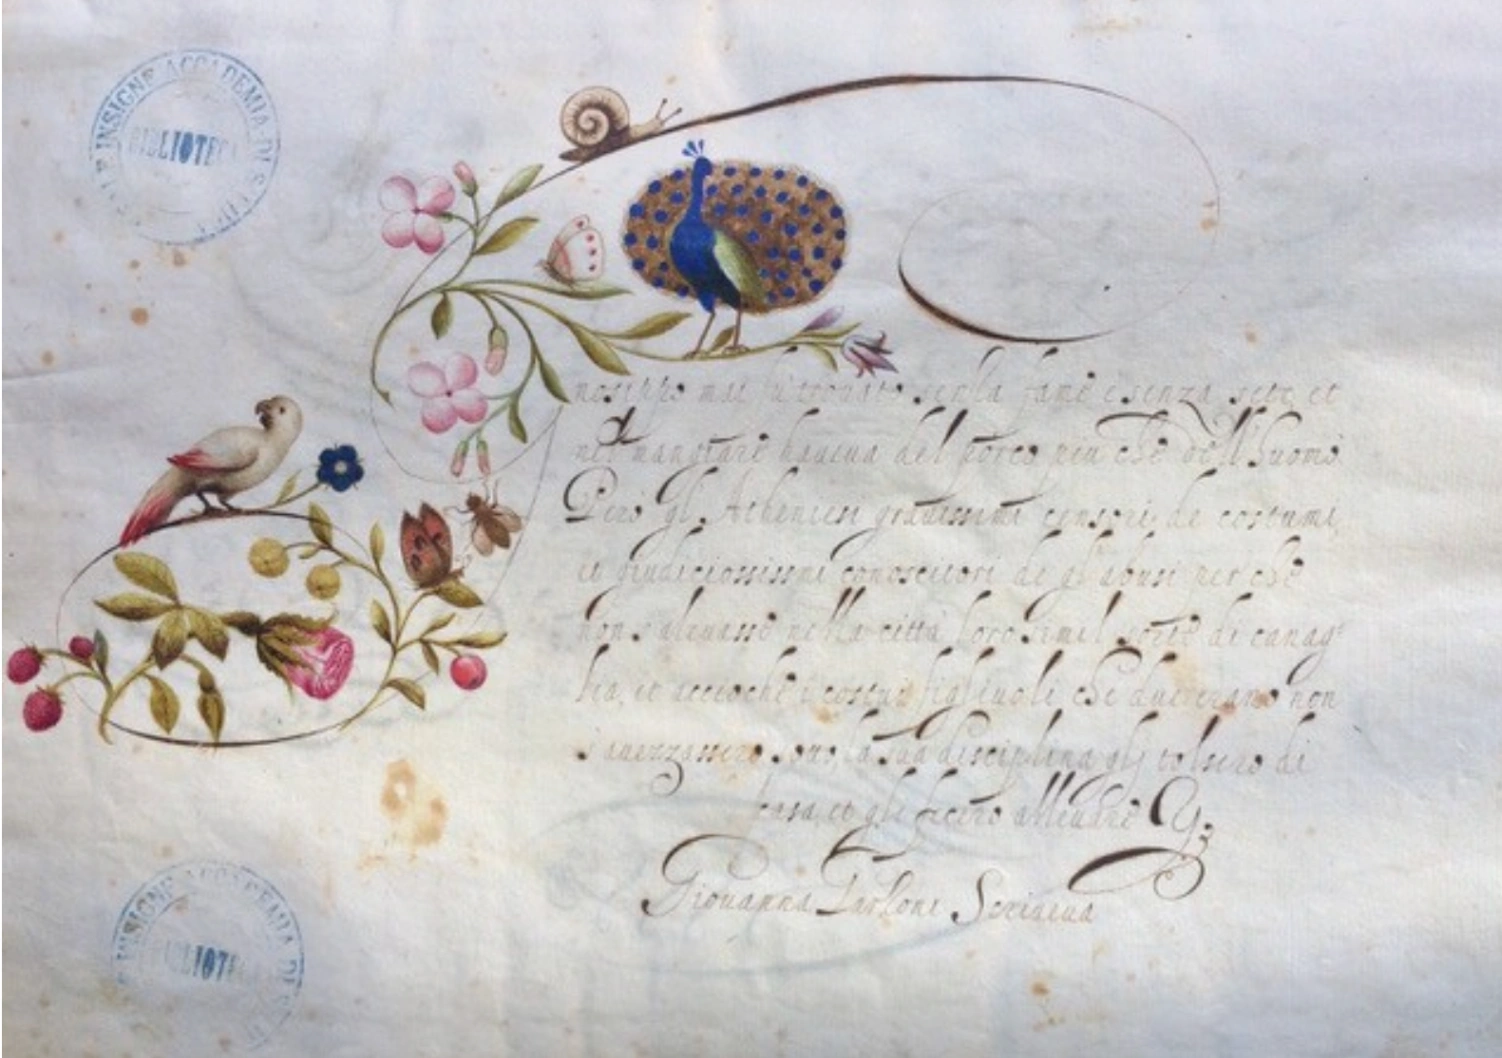 INSIGNE ACCADEMIA DI S. LUCA
BIBLIOTECA
mai fu trouato senza fame e senza sete, et
nel mangiare haueua del porco piu che dell'huomo
Però gl'Atheniesi grauissimi censori de costumi,
et giudiciosissimi conoscitori de gl'abusi perche
non s'aleuasse nella città loro simil sorte di canag-
lia, et accioche i costui figliuoli che due erano non
s'auezzassero sotto la sua disciplina gli tolsero di
casa, et gli fecero alleuare
Giouanna Garzoni Scriueua
INSIGNE ACCADEMIA DI
BIBLIOTECA